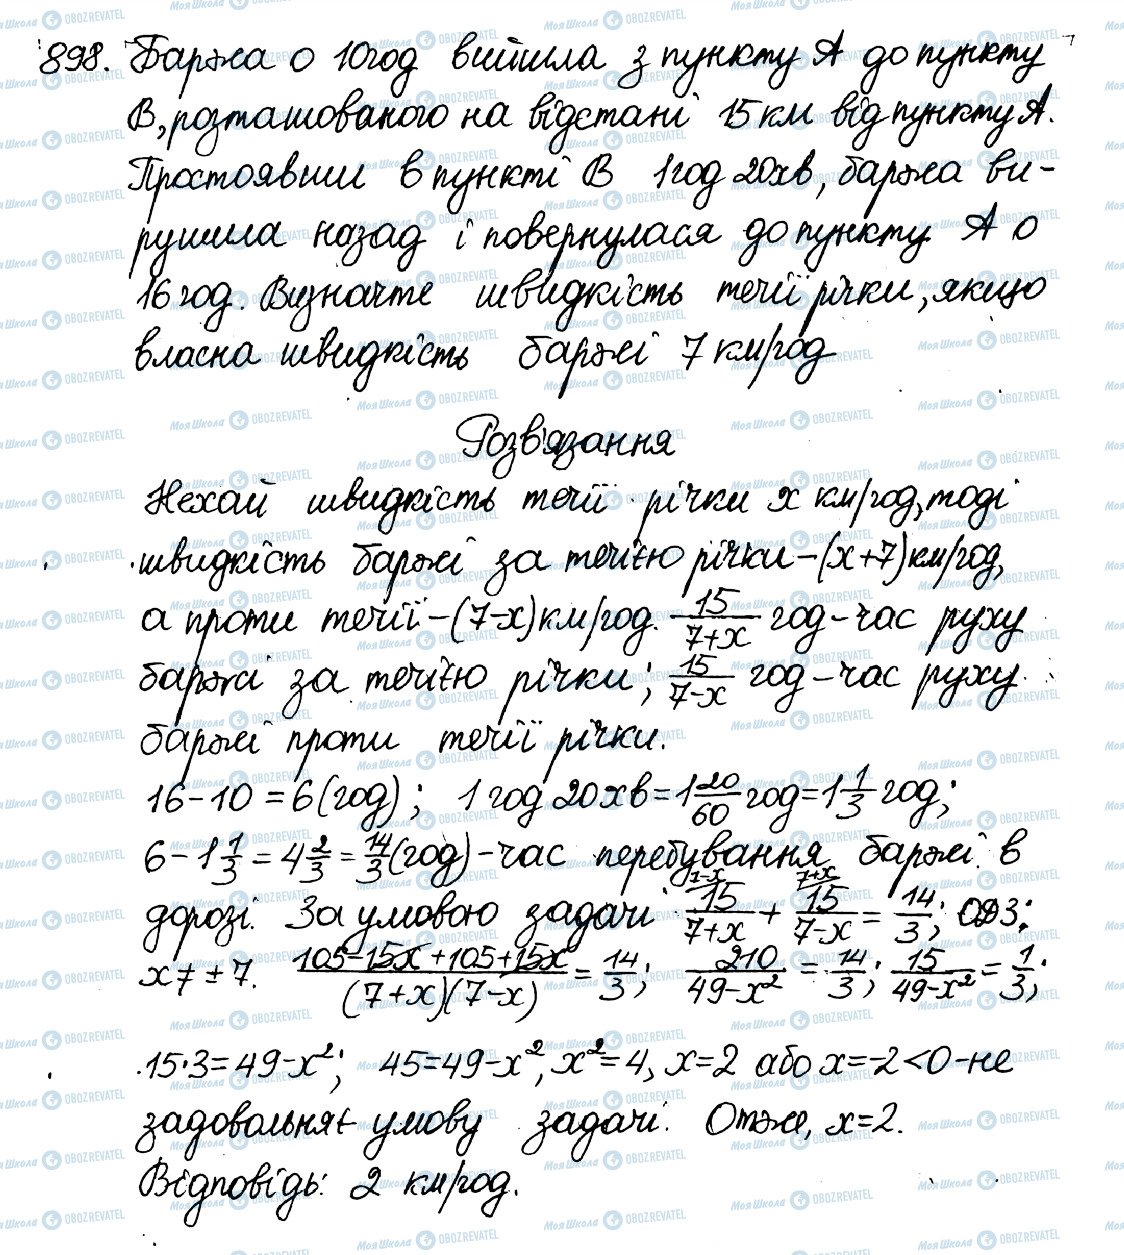 898. Баржа о 10год вийшла з пункту А до пункту
В, розташованого на відстані 15 км від пункту А.
Простоявши в пункті В 1год 20хв, баржа ви-
рушила назад і повернулася до пункту А о
16 год. Визначте швидкість течії річки, якщо
власна швидкість баржі 7 км/год
Розв'язання
Нехай швидкість течії річки x км/год, тоді
швидкість баржі за течією річки – (x+7) км/год,
а проти течії – (7-x) км/год. 15/(7+x) год – час руху
баржі за течією річки; 15/(7-x) год – час руху
баржі проти течії річки.
16-10=6(год); 1 год 20хв = 1 20/60 год = 1 1/3 год;
6 - 1 1/3 = 4 2/3 = 14/3 (год) – час перебування баржі в
дорозі. За умовою задачі 15/(7+x) + 15/(7-x) = 14/3; ОДЗ:
x ≠ ±7. (105-15x+105+15x)/((7+x)(7-x)) = 14/3; 210/(49-x²) = 14/3; 15/(49-x²) = 1/3;
15·3=49-x²; 45=49-x², x²=4, x=2 або x=-2<0-не
задовольняє умову задачі. Отже, x=2.
Відповідь: 2 км/год.